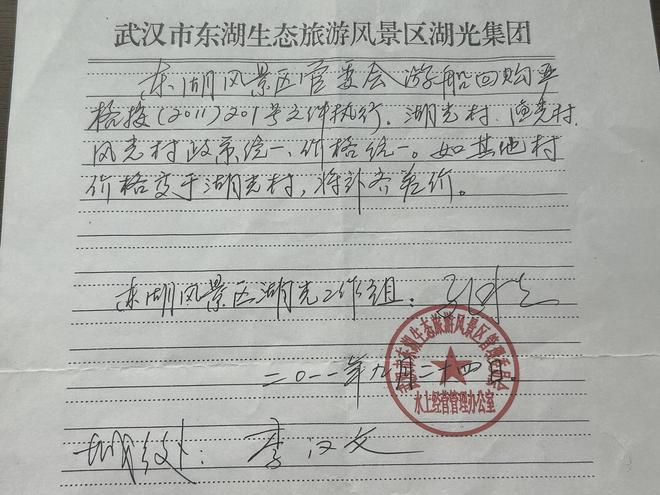 武汉市东湖生态旅游风景区湖光集团
东湖风景区管委会游船回购严
格按(2011)201号文件执行.湖光村.渔光村.
风光村政策统一、价格统一。如其他村
价格变于湖光村,将补齐差价。
东湖风景区湖光工作组:
二〇一一年九月二十四日.
东湖生态旅游风景区管理委员会
水上经营管理办公室
李汉文